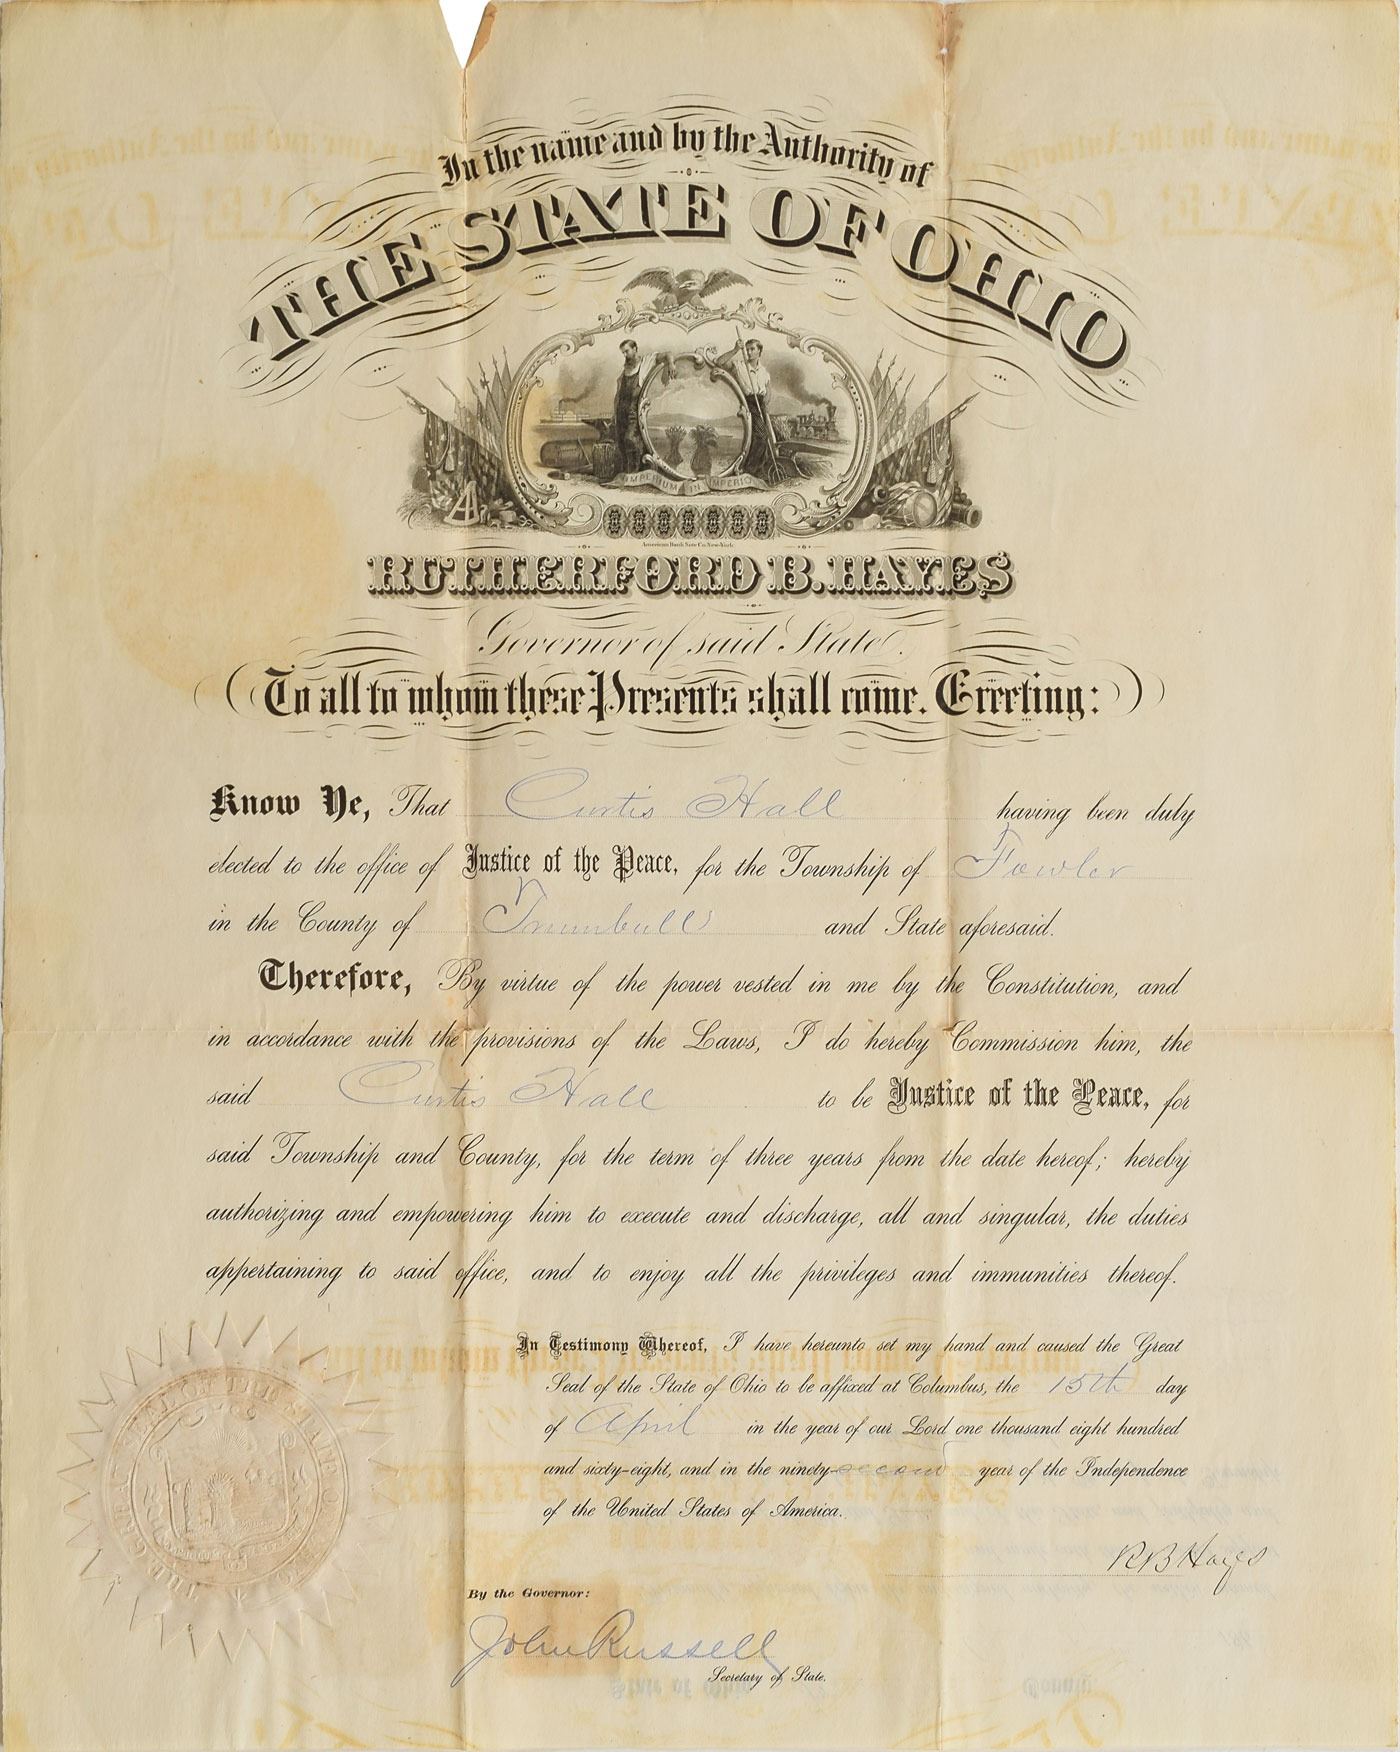 In the name and by the Authority of
THE STATE OF OHIO
IMPERIUM IN IMPERIO
American Bank Note Co. New-York
RUTHERFORD B. HAYES
Governor of said State.
To all to whom these Presents shall come. Greeting:
Know Ye, That Curtis Hall having been duly
elected to the office of Justice of the Peace, for the Township of Fowler
in the County of Trumbull and State aforesaid.
Therefore, By virtue of the power vested in me by the Constitution, and
in accordance with the provisions of the Laws, I do hereby Commission him, the
said Curtis Hall to be Justice of the Peace, for
said Township and County, for the term of three years from the date hereof; hereby
authorizing and empowering him to execute and discharge, all and singular, the duties
appertaining to said office, and to enjoy all the privileges and immunities thereof.
In Testimony Whereof, I have hereunto set my hand and caused the Great
Seal of the State of Ohio to be affixed at Columbus, the 15th day
of April in the year of our Lord one thousand eight hundred
and sixty-eight, and in the ninety-second year of the Independence
of the United States of America.
THE GREAT SEAL OF THE STATE OF OHIO
R B Hayes
By the Governor:
John Russell
Secretary of State.